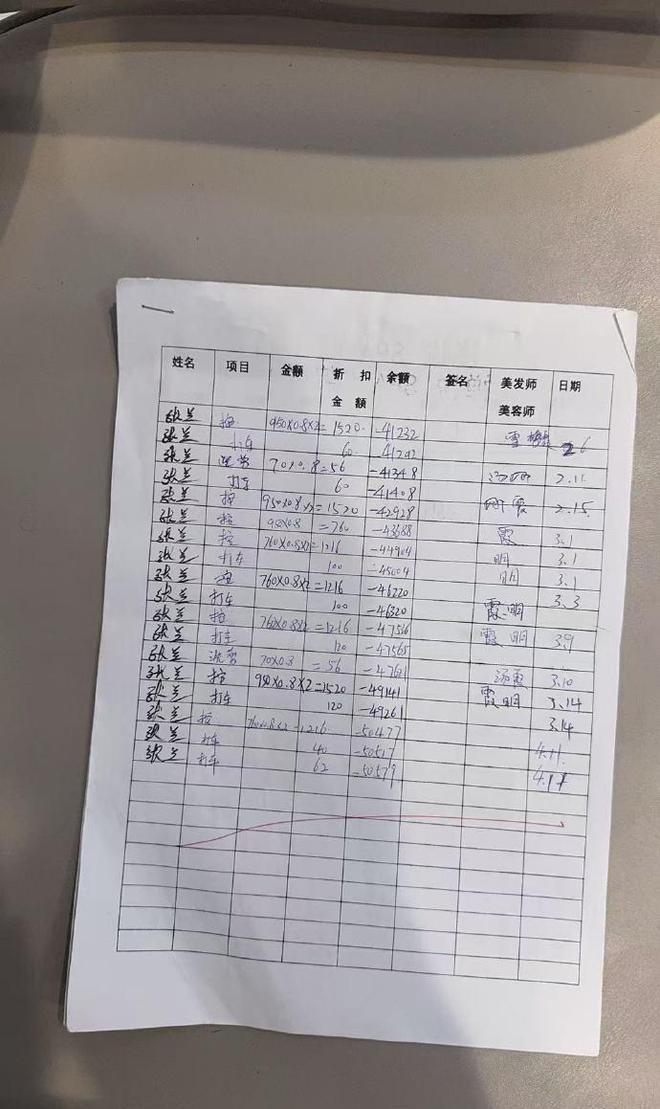 姓名 项目 金额 折扣金额 余额 签名 美发师美容师 日期
张兰 按 950×0.8×2=1520 -41232
张兰 打车 60 41292 2.6
张兰 70×0.8=56 -41348 2.11
张兰 打车 60 -41408
张兰 按 950×0.8×2=1520 -42928 明霞 2.15
张兰 按 950×0.8=760 -43688 霞 3.1
张兰 按 760×0.8×2=1216 -44904 明 3.1
张兰 打车 100 -45004 明 3.1
张兰 按 760×0.8×2=1216 -46220 3.3
张兰 打车 100 -46320 霞明
张兰 按 760×0.8×2=1216 -47536
张兰 打车 120 -47565 霞明 3.9
张兰 洗剪 70×0.8=56 -47621 3.10
张兰 按 950×0.8×2=1520 -49141 霞明 3.14
张兰 打车 120 -49261
张兰 按 760×0.8×2=1216 -50477 3.14
张兰 打车 40 -50517 4.11
张兰 打车 62 -50579 4.11